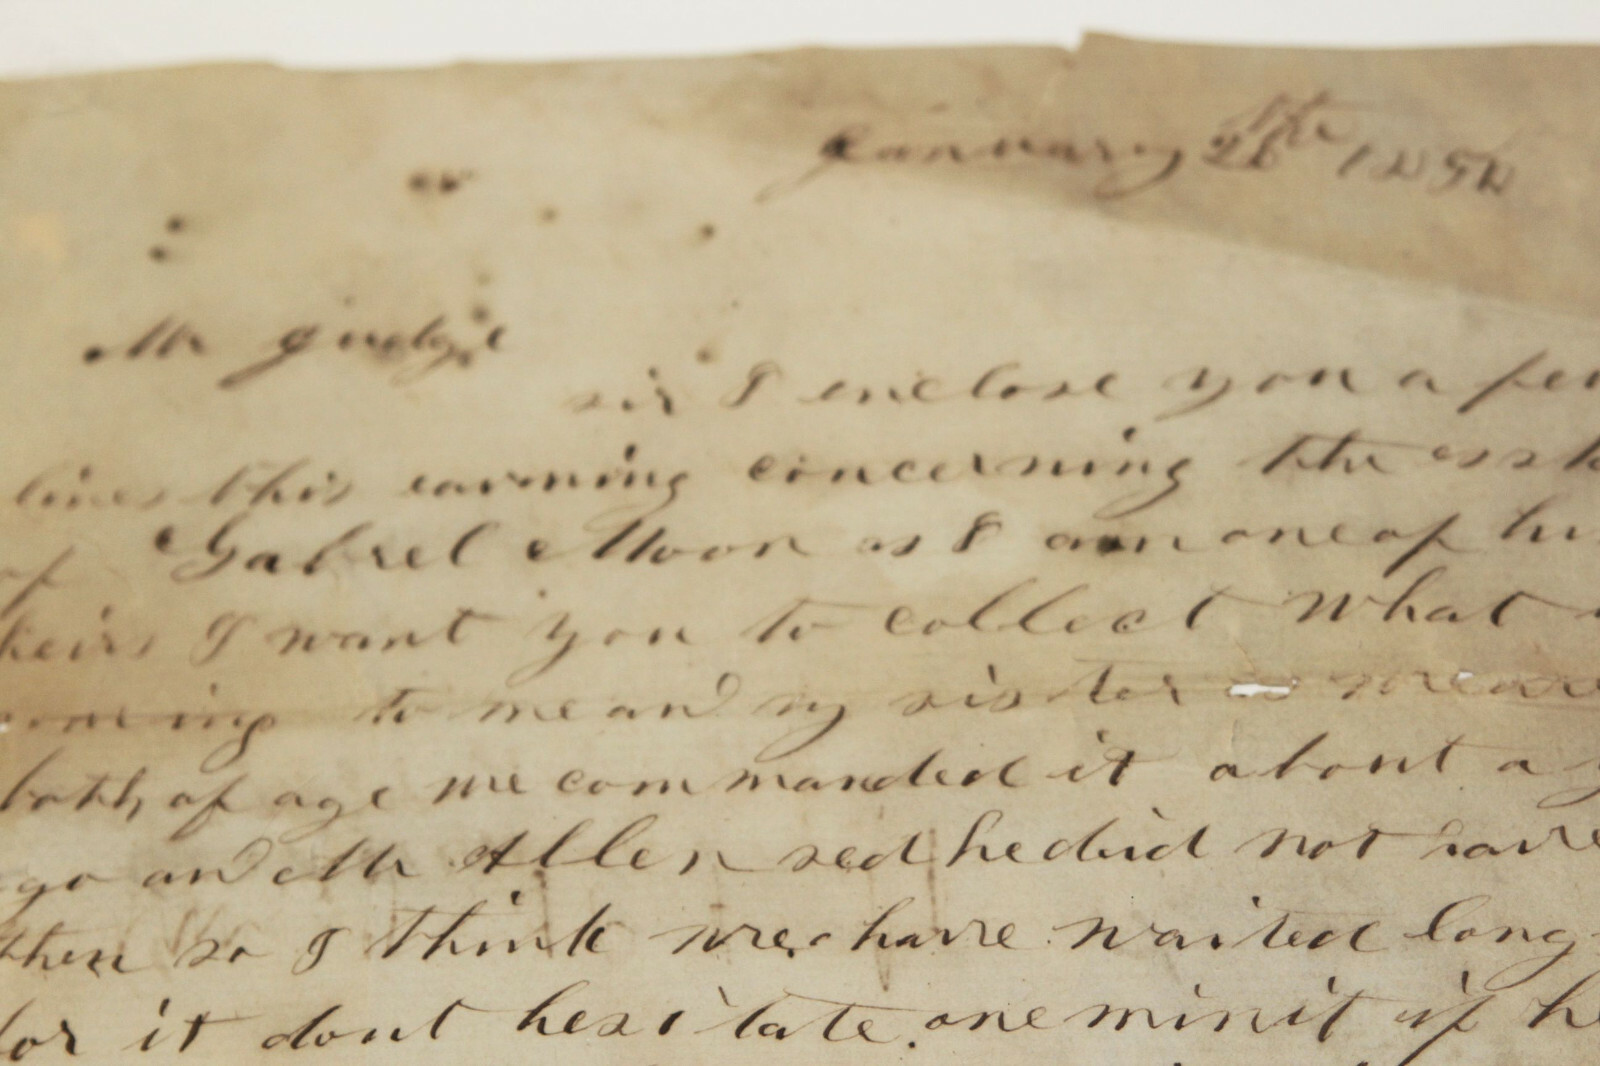 January 26th 1858
Mr Judge
sir I enclose you a few
lines this earning concerning the
of Gabrel Moon as I am one of his
heirs I want you to collect What
to me and my sister as we are
both of age we commanded it about a
ago and Mr Allen sed he did not have
then so I think we have waited long
for it dont hesitate one minit if he